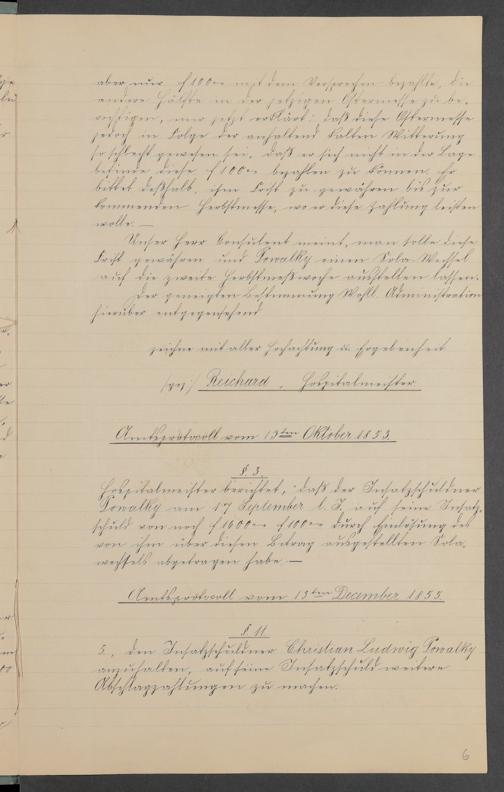 aber nur f 100.– mit dem Versprechen bezahlte, die
andere Hälfte in der jetzigen Ostermesse zu be-
richtigen, nur jetzt erklärt: daß diese Ostermesse
jedoch in Folge der anhaltend kalten Witterung
so schlecht gewesen sei, daß er sich nicht in der Lage
befinde diese f 100.– bezahlen zu können. Er
bittet deßhalb, ihm Frist zu gewähren bis zur
kommenden Herbstmesse, wo er diese Zahlung leisten
wolle. –
Unser Herr Consulent meint, man solle diese
Frist gewähren und Powalky einen Sola-Wechsel
auf die zweite Herbstmeßwoche ausstellen lassen.
Der geneigten Bestimmung Wohll. Administration
hierüber entgegensehend
zeichne mit aller Hochachtung u. Ergebenheit
Reichard, Hospitalmeister.
Amtsprotocoll vom 13ten Oktober 1853.
§ 3.
Hospitalmeister berichtet, daß der Insatzschuldner
Powalky am 17 September l. J. auf seine Insatz-
schuld von noch f 1600.– f 100.– durch Einlösung des
von ihm über diesen Betrag ausgestellten Sola-
wechsels abgetragen habe –
Amtsprotocoll vom 13ten December 1855.
§ 11
5., den Insatzschuldner Christian Ludwig Powalky
anzuhalten, auf seine Insatzschuld weitere
Abschlagzahlungen zu machen.
6